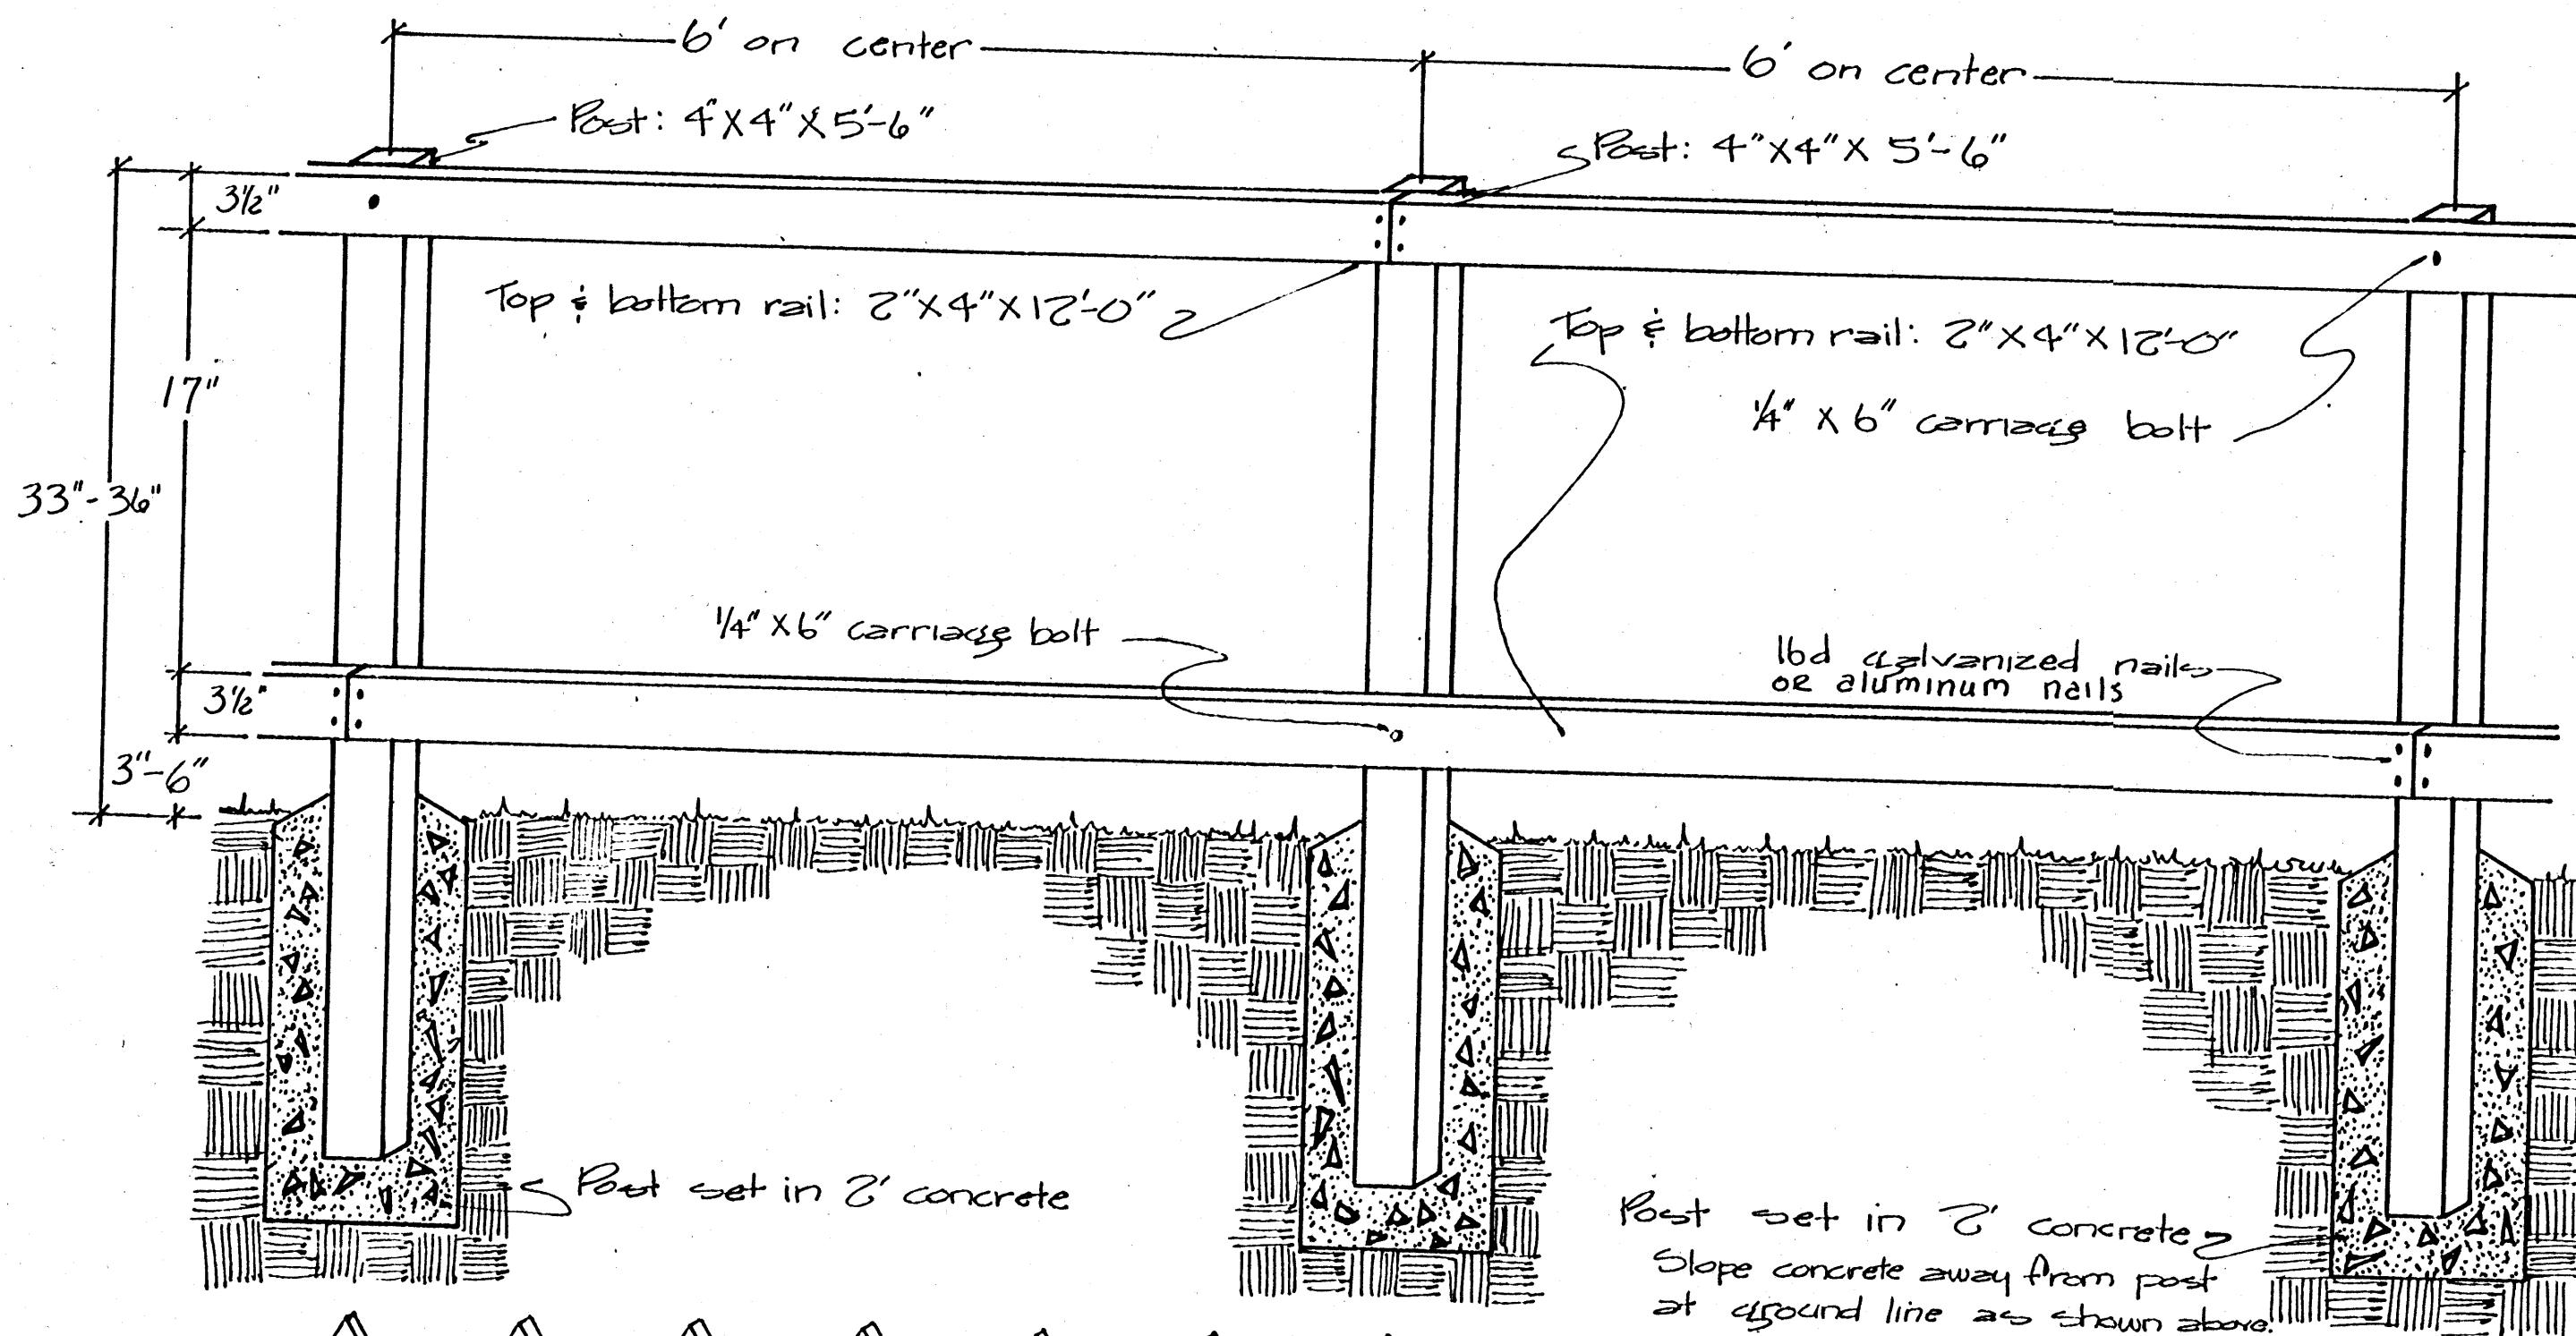 6' on center
6' on center
Post: 4"X4"X5'-6"
Post: 4"X4"X 5'-6"
3½"
Top & bottom rail: 2"X4"X12'-0"
Top & bottom rail: 2"X4"X12'-0"
17"
¼" X 6" carriage bolt
33"-36"
¼" X6" carriage bolt
16d galvanized nails
OR aluminum nails
3½"
3"-6"
Post set in 2' concrete
Post set in 2' concrete
Slope concrete away from post
at ground line as shown above.